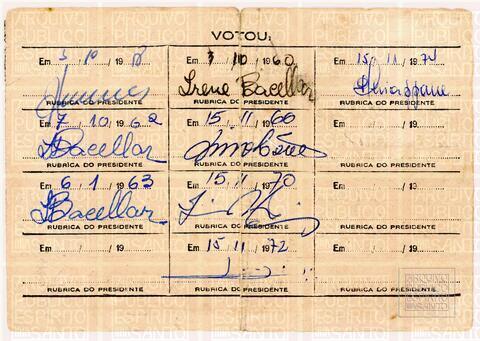 VOTOU:
Em 3 / 10 / 19
RUBRICA DO PRESIDENTE
Em 3 / 10 / 1960
Irene Bacellar
RUBRICA DO PRESIDENTE
Em 15 / 11 / 1974
RUBRICA DO PRESIDENTE
Em 7 / 10 / 1962
IBacellar
RUBRICA DO PRESIDENTE
Em 15 / 11 / 1966
RUBRICA DO PRESIDENTE
Em / / 19
RUBRICA DO PRESIDENTE
Em 6 / 1 / 1963
IBacellar
RUBRICA DO PRESIDENTE
Em 15 / 11 / 1970
RUBRICA DO PRESIDENTE
Em / / 19
RUBRICA DO PRESIDENTE
Em / / 19
RUBRICA DO PRESIDENTE
Em 15 / 11 / 1972
RUBRICA DO PRESIDENTE
Em / / 19
RUBRICA DO PRESIDENTE
ARQUIVO
PÚBLICO
ESPÍRITO
SANTO